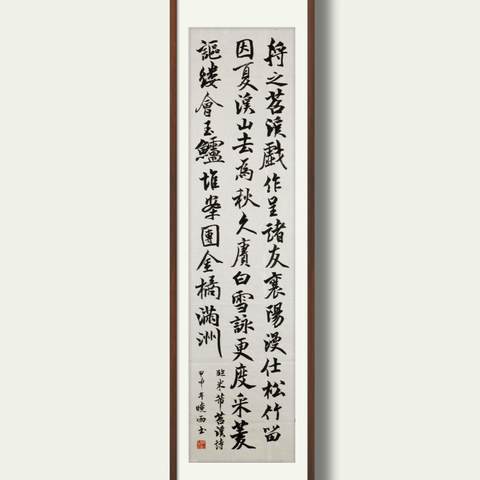 將之苕溪戲作呈諸友襄陽漫仕松竹留
因夏溪山去為秋久賡白雪詠更度采菱
謳縷會玉鱸堆案團金橘滿洲
臨米芾苕溪詩
甲申年曉雨书